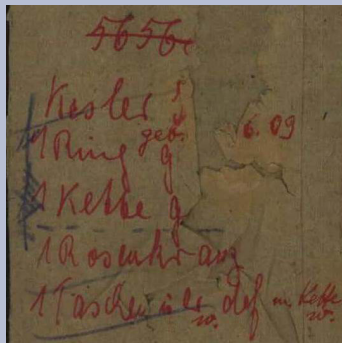 5656
Kesler
1 Ring geb. g 6.09
1 Kette g.
1 Rosenkranz
1 Taschenuhr def m. Kette
w. w.